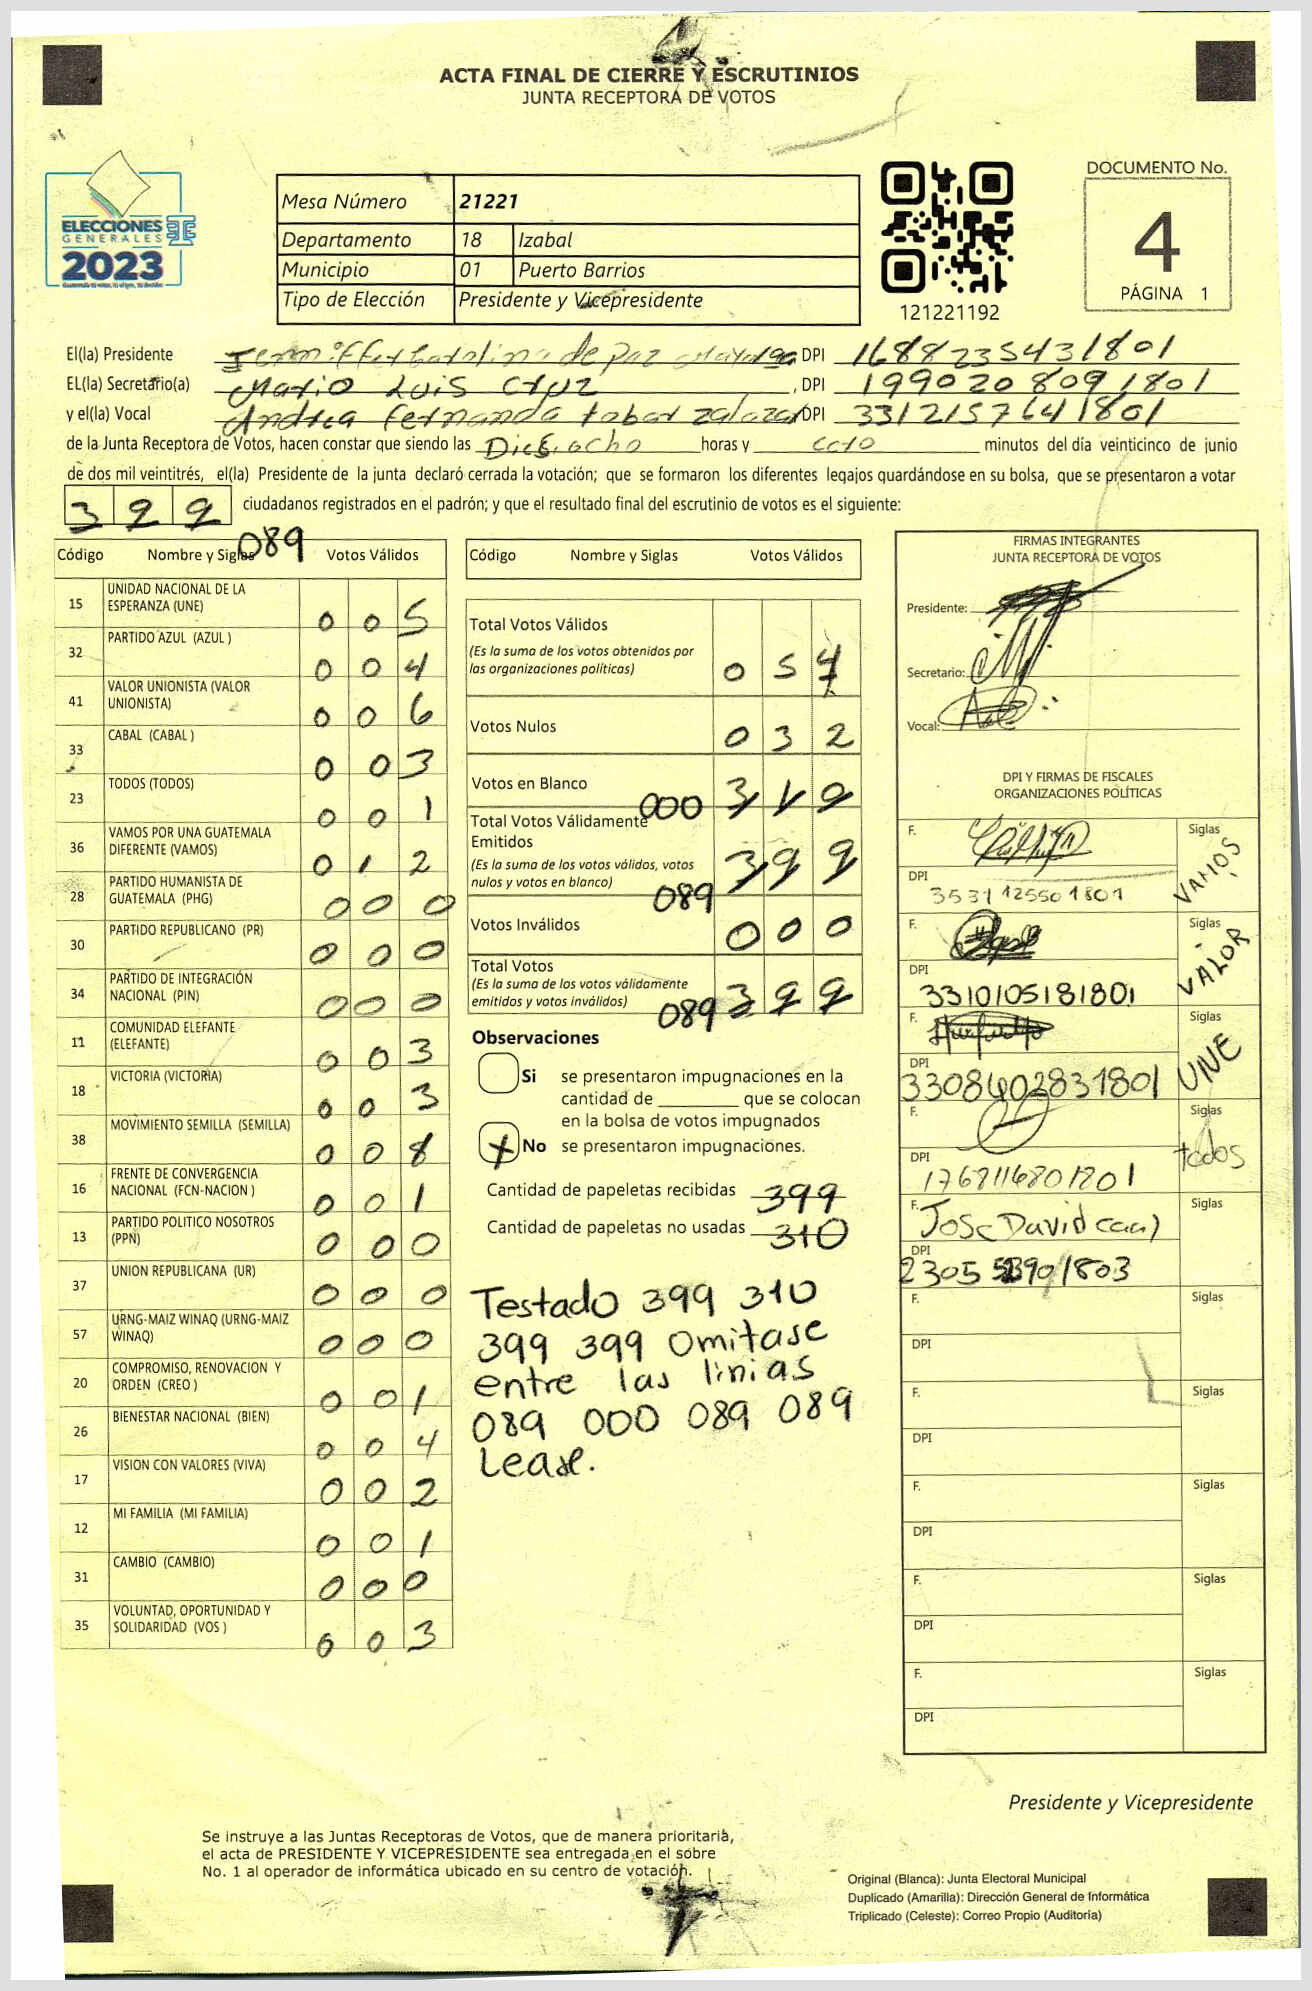 ACTA FINAL DE CIERRE Y ESCRUTINIOS
JUNTA RECEPTORA DE VOTOS
ELECCIONES
GENERALES
2023
Mesa Número 21221
Departamento 18 Izabal
Municipio 01 Puerto Barrios
Tipo de Elección Presidente y Vicepresidente
121221192
DOCUMENTO No.
4
PÁGINA 1
El(la) Presidente de paz DPI 1688235431801
EL(la) Secretario(a) Mario Luis Cruz, DPI 1990208091801
y el(la) Vocal Andrea Fernanda tobar zalazar DPI 3312157641801
de la Junta Receptora de Votos, hacen constar que siendo las Diesiocho horas y ocho minutos del día veinticinco de junio
de dos mil veintitrés, el(la) Presidente de la junta declaró cerrada la votación; que se formaron los diferentes legajos guardándose en su bolsa, que se presentaron a votar
399 ciudadanos registrados en el padrón; y que el resultado final del escrutinio de votos es el siguiente:
089
Código Nombre y Siglas Votos Válidos
15 UNIDAD NACIONAL DE LA ESPERANZA (UNE) 0 0 5
32 PARTIDO AZUL (AZUL ) 0 0 4
41 VALOR UNIONISTA (VALOR UNIONISTA) 0 0 6
33 CABAL (CABAL ) 0 0 3
23 TODOS (TODOS) 0 0 1
36 VAMOS POR UNA GUATEMALA DIFERENTE (VAMOS) 0 1 2
28 PARTIDO HUMANISTA DE GUATEMALA (PHG) 0 0 0
30 PARTIDO REPUBLICANO (PR) 0 0 0
34 PARTIDO DE INTEGRACIÓN NACIONAL (PIN) 0 0 0
11 COMUNIDAD ELEFANTE (ELEFANTE) 0 0 3
18 VICTORIA (VICTORIA) 0 0 3
38 MOVIMIENTO SEMILLA (SEMILLA) 0 0 8
16 FRENTE DE CONVERGENCIA NACIONAL (FCN-NACION ) 0 0 1
13 PARTIDO POLITICO NOSOTROS (PPN) 0 0 0
37 UNION REPUBLICANA (UR) 0 0 0
57 URNG-MAIZ WINAQ (URNG-MAIZ WINAQ) 0 0 0
20 COMPROMISO, RENOVACION Y ORDEN (CREO ) 0 0 1
26 BIENESTAR NACIONAL (BIEN) 0 0 4
17 VISION CON VALORES (VIVA) 0 0 2
12 MI FAMILIA (MI FAMILIA) 0 0 1
31 CAMBIO (CAMBIO) 0 0 0
35 VOLUNTAD, OPORTUNIDAD Y SOLIDARIDAD (VOS ) 0 0 3
Código Nombre y Siglas Votos Válidos
Total Votos Válidos 0 5
(Es la suma de los votos obtenidos por
las organizaciones políticas)
Votos Nulos 0 3 2
Votos en Blanco 000 310
Total Votos Válidamente
Emitidos
(Es la suma de los votos válidos, votos
nulos y votos en blanco) 089 399
Votos Inválidos 0 0 0
Total Votos
(Es la suma de los votos válidamente
emitidos y votos inválidos) 089 399
Observaciones
Si se presentaron impugnaciones en la
cantidad de ________ que se colocan
en la bolsa de votos impugnados
X No se presentaron impugnaciones.
Cantidad de papeletas recibidas 399
Cantidad de papeletas no usadas 310
Testado 399 310
399 399 Omitase
entre las linias
089 000 089 089
Lease.
FIRMAS INTEGRANTES
JUNTA RECEPTORA DE VOTOS
Presidente:
Secretario:
Vocal:
DPI Y FIRMAS DE FISCALES
ORGANIZACIONES POLÍTICAS
F. Siglas VAMOS
DPI 3531125501801
F. Siglas VALOR
DPI 3310105181801
F. Siglas UNE
DPI 3308402831801
F. Siglas todos
DPI
F. Jose David Siglas
DPI
F. Siglas
DPI
F. Siglas
DPI
F. Siglas
DPI
F. Siglas
DPI
F. Siglas
DPI
Presidente y Vicepresidente
Se instruye a las Juntas Receptoras de Votos, que de manera prioritaria,
el acta de PRESIDENTE Y VICEPRESIDENTE sea entregada en el sobre
No. 1 al operador de informática ubicado en su centro de votación.
Original (Blanca): Junta Electoral Municipal
Duplicado (Amarilla): Dirección General de Informática
Triplicado (Celeste): Correo Propio (Auditoría)